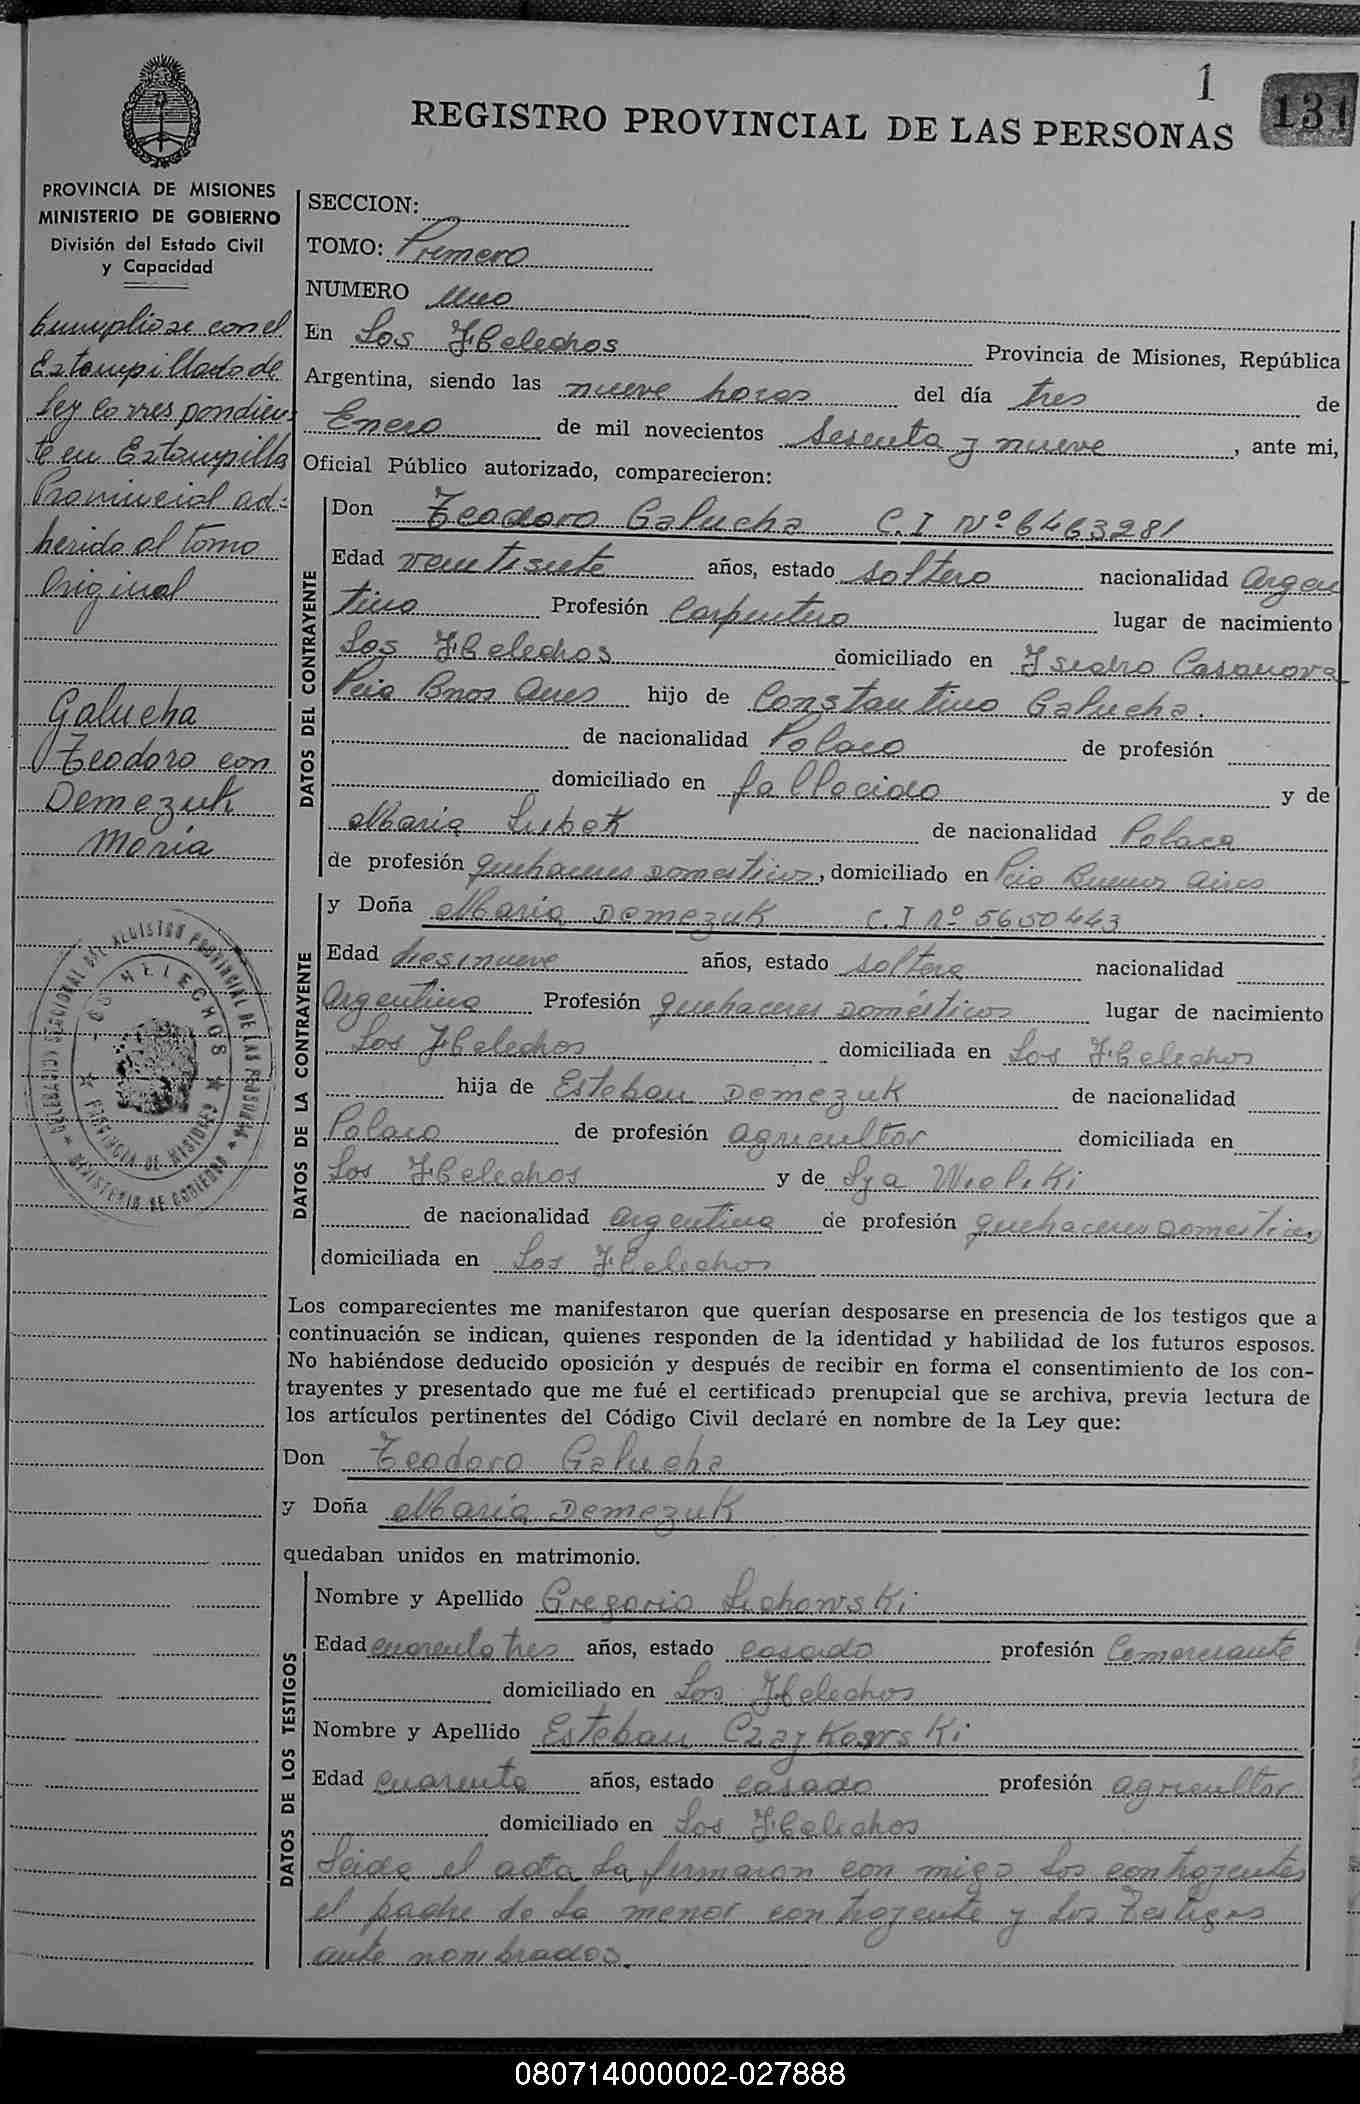 1
131
REGISTRO PROVINCIAL DE LAS PERSONAS
PROVINCIA DE MISIONES
MINISTERIO DE GOBIERNO
División del Estado Civil
y Capacidad
Cumpliose con el
Estampillado de
Ley Correspondien-
te en Estampilla
Provincial ad-
herida al tomo
Original
Galucha
Teodoro con
Demezuk
Maria
DEL REGISTRO PROVINCIAL DE LAS PERSONAS
LOS HELECHOS
PROVINCIA DE MISIONES
MINISTERIO DE GOBIERNO
SECCION:
TOMO: Primero
NUMERO Uno
En Los Helechos Provincia de Misiones, República
Argentina, siendo las nueve horas del día tres de
Enero de mil novecientos Sesenta y nueve, ante mi,
Oficial Público autorizado, comparecieron:
DATOS DEL CONTRAYENTE
Don Teodoro Galucha C.I Nº 6463281
Edad veintisiete años, estado soltero nacionalidad Argen
tino Profesión Carpintero lugar de nacimiento
Los Helechos domiciliado en Isidro Casanova
Pcia Bnos Aires hijo de Constantino Galucha.
de nacionalidad Polaco de profesión
domiciliado en fallecido y de
Maria Lubek de nacionalidad Polaca
de profesión quehaceres domesticos, domiciliado en Pcia Buenos Aires
DATOS DE LA CONTRAYENTE
y Doña Maria Demezuk C.I Nº 5650443
Edad diesinueve años, estado soltera nacionalidad
Argentina Profesión quehaceres domésticos lugar de nacimiento
Los Helechos domiciliada en Los Helechos
hija de Esteban Demezuk de nacionalidad
Polaco de profesión agricultor domiciliada en
Los Helechos y de Lya Wieliki
de nacionalidad argentina de profesión quehaceres domesticos
domiciliada en Los Helechos
Los comparecientes me manifestaron que querían desposarse en presencia de los testigos que a
continuación se indican, quienes responden de la identidad y habilidad de los futuros esposos.
No habiéndose deducido oposición y después de recibir en forma el consentimiento de los con-
trayentes y presentado que me fué el certificado prenupcial que se archiva, previa lectura de
los artículos pertinentes del Código Civil declaré en nombre de la Ley que:
Don Teodoro Galucha
y Doña Maria Demezuk
quedaban unidos en matrimonio.
DATOS DE LOS TESTIGOS
Nombre y Apellido Gregorio Lichowski
Edad cuarenta tres años, estado casado profesión Comerciante
domiciliado en Los Helechos
Nombre y Apellido Esteban Czajkowski
Edad cuarenta años, estado casado profesión agricultor
domiciliado en Los Helechos
Leida el acta la firmaron con migo los contrayentes
el padre de la menor contrayente y los Testigos
ante nombrados.
080714000002-027888